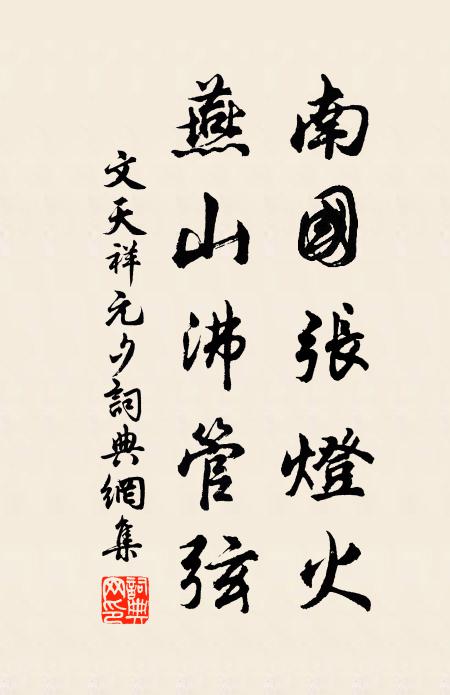 南國張燈火
燕山沸管弦
文天祥元夕詞典網集
詞典網印